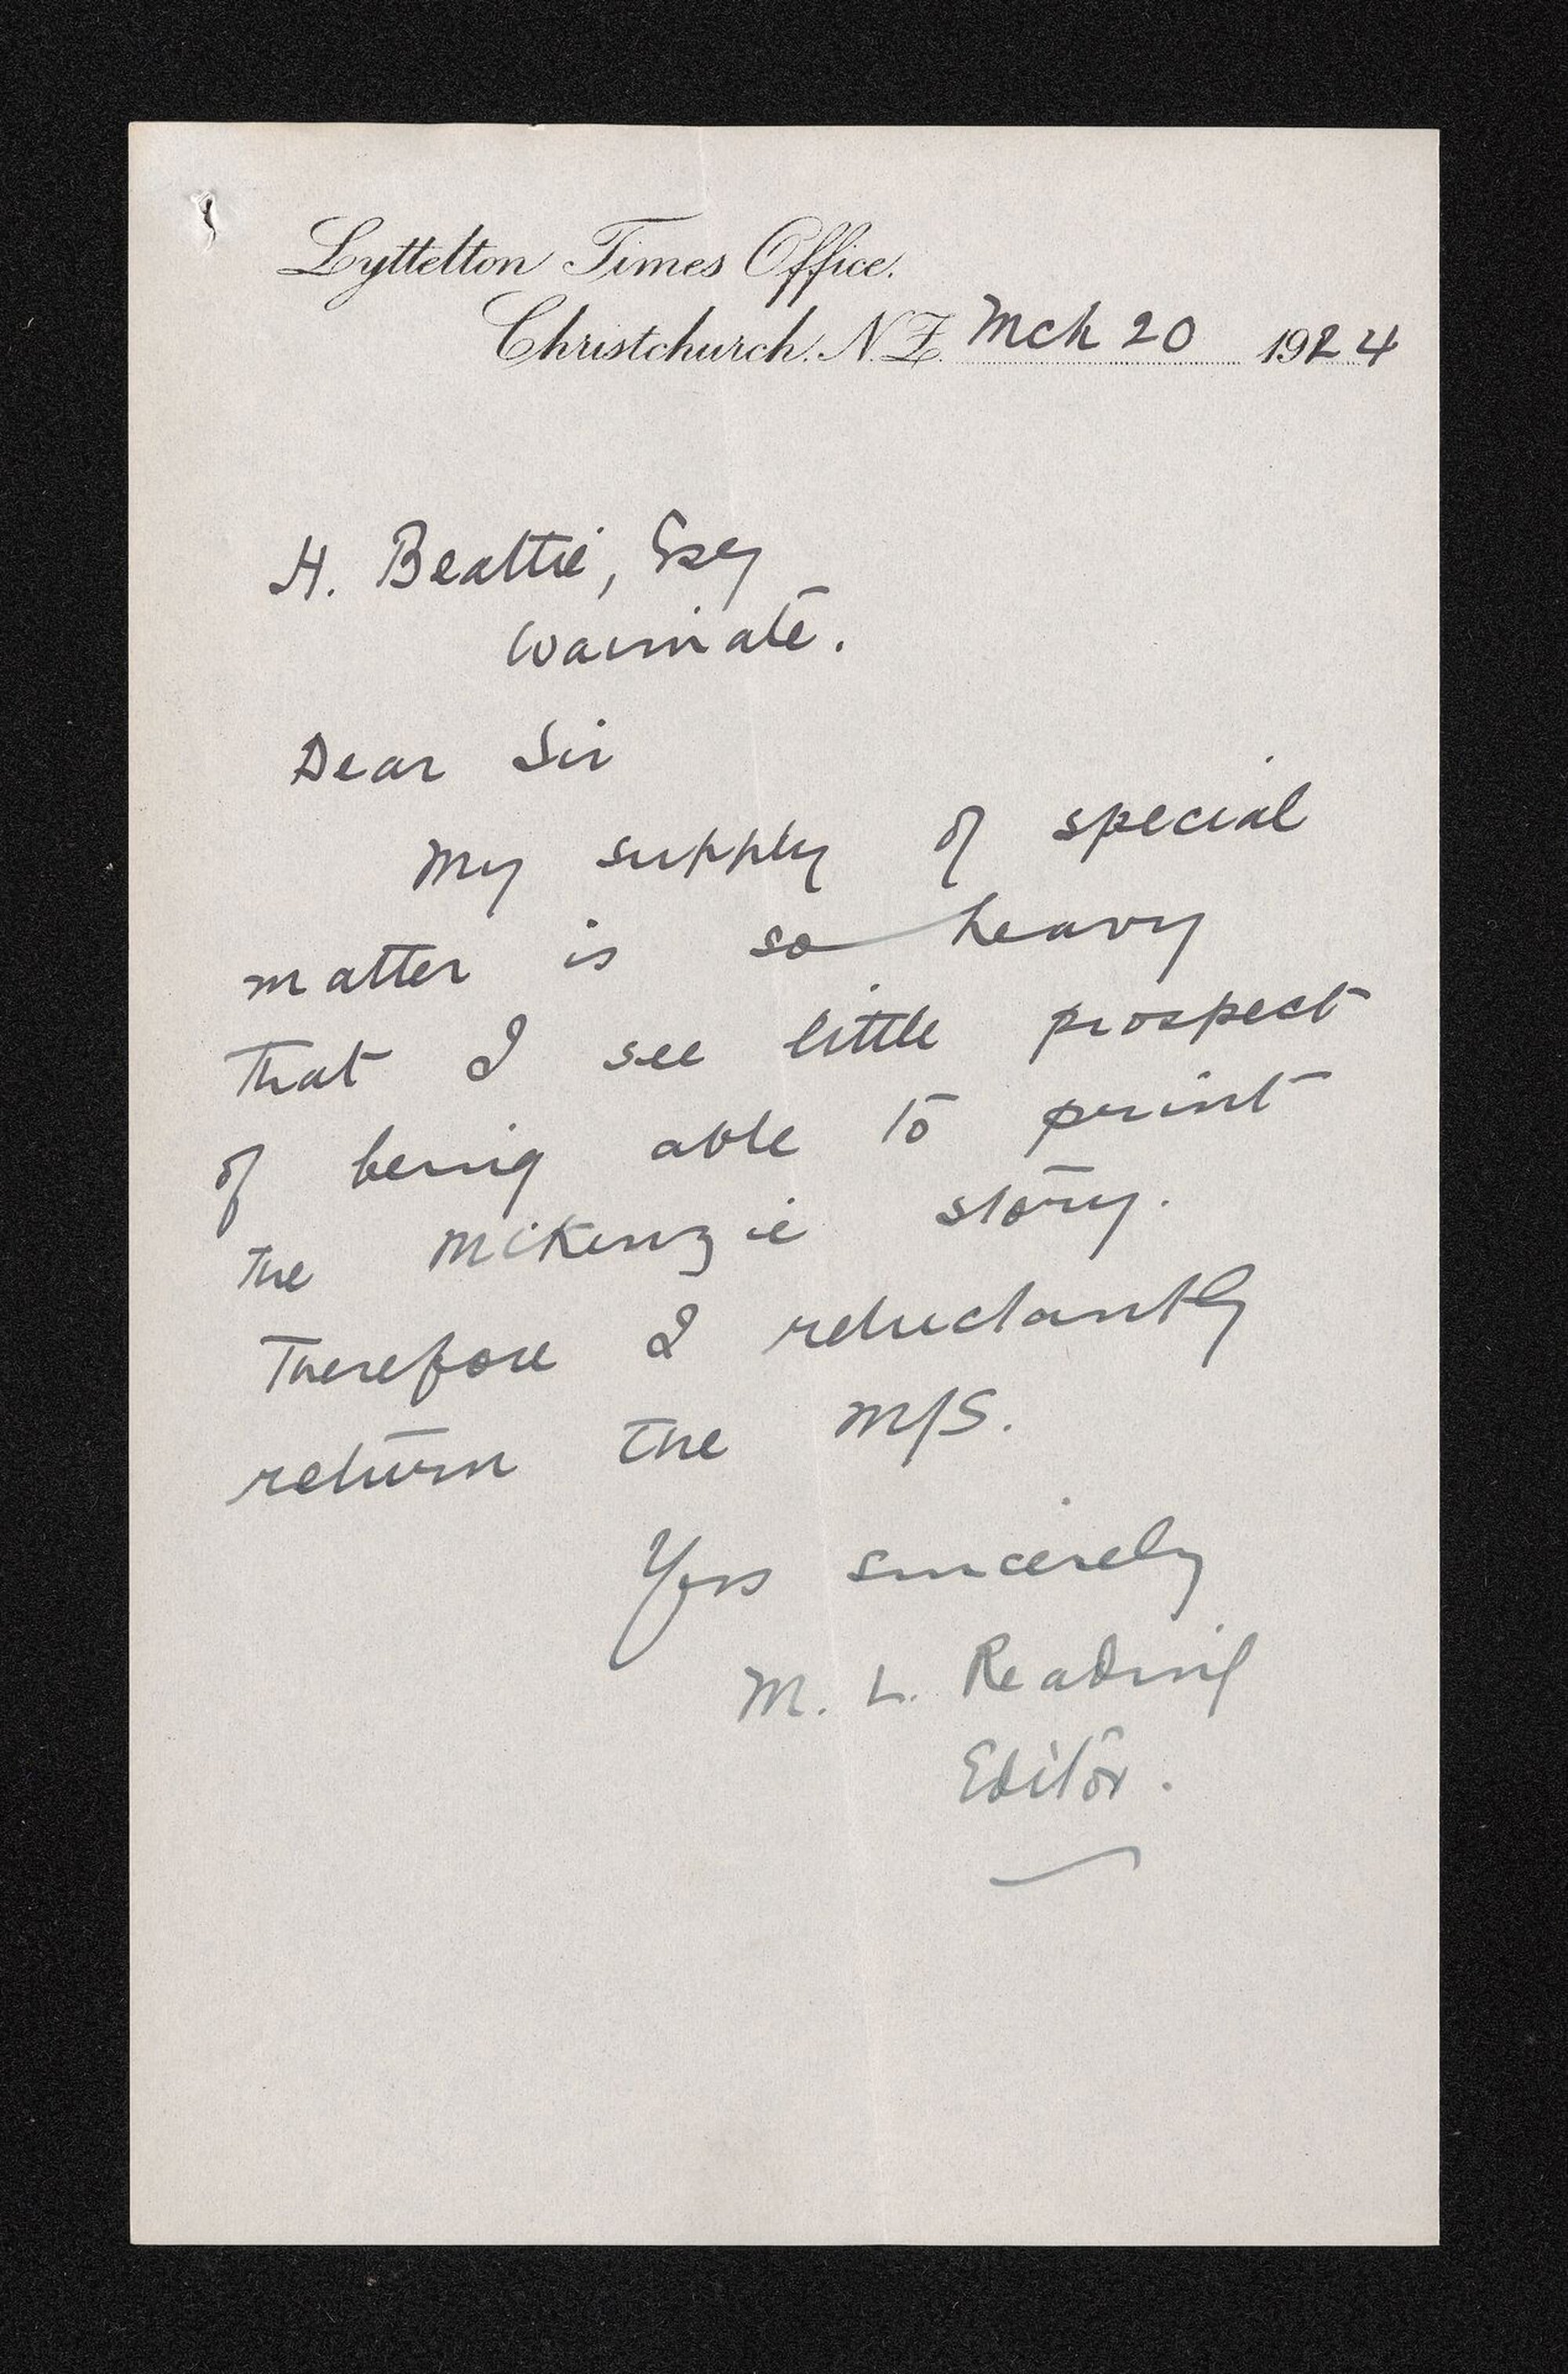 Lyttelton Times Office.
Christchurch. N.Z. Mch 20 1924
H. Beattie, Esq
Waimate.
Dear Sir
My supply of special
matter is so heavy
that I see little prospect
of being able to print
the McKenzie story.
Therefore I reluctantly
return the M/S.
Yrs sincerely
M. L. Reading
Editor.